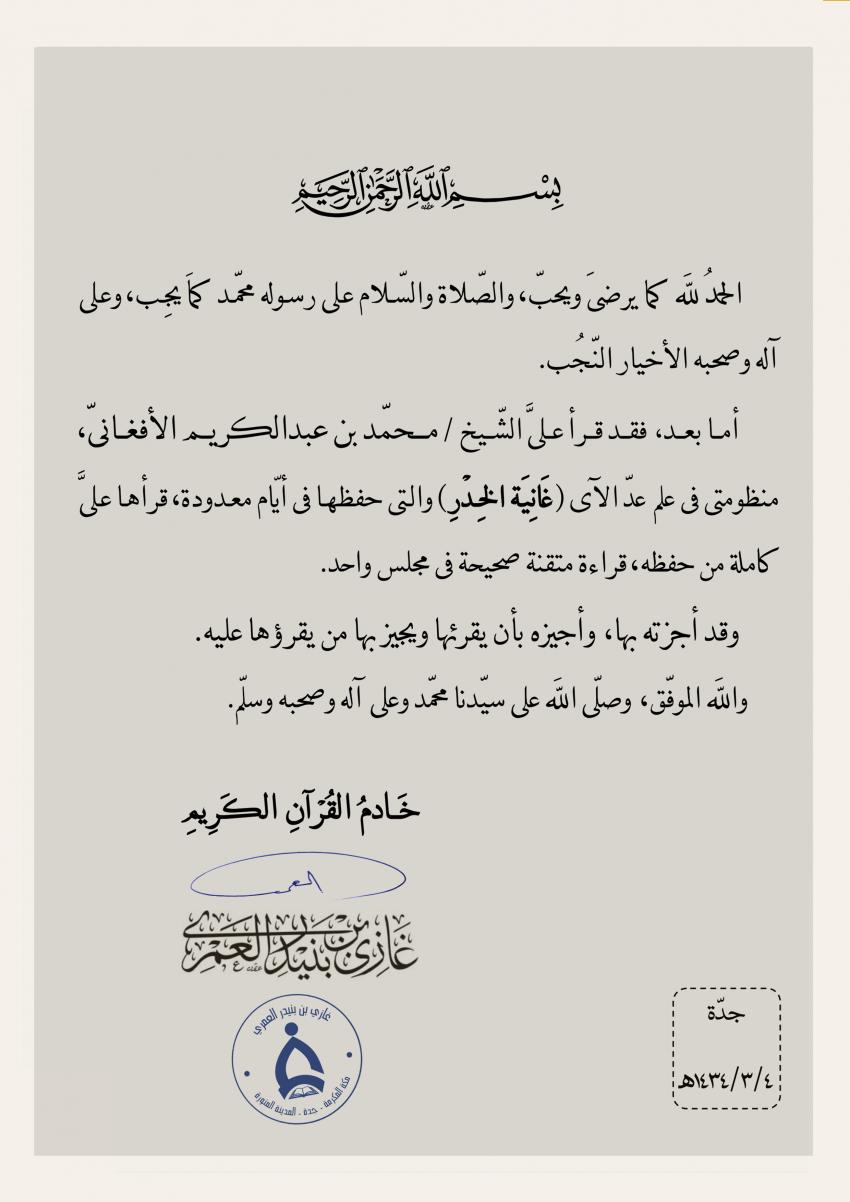 بِسْمِ ٱللَّهِ ٱلرَّحْمَٰنِ ٱلرَّحِيمِ
الحمدُ للَّه كما يرضىَ ويحبّ، والصّلاة والسّلام على رسوله محمّد كمَا يجِب، وعلى
آله وصحبه الأخيار النّجُب.
أما بعد، فقد قرأ علىَّ الشّيخ / محمّد بن عبدالكريم الأفغانىّ،
منظومتى فى علم عدّ الآى (غَانِيَة الخِدْرِ) والتى حفظها فى أيّام معدودة، قرأها علىَّ
كاملة من حفظه، قراءة متقنة صحيحة فى مجلس واحد.
وقد أجزته بها، وأجيزه بأن يقرئها ويجيز بها من يقرؤها عليه.
واللَّه الموفّق، وصلّى اللَّه على سيّدنا محمّد وعلى آله وصحبه وسلّم.
خَادمُ القُرْآنِ الكَرِيمِ
العمرى
غَازِى بْنُ بنَيْدِر العَمْرِى
غازي بن بنيدر العمري
مكة المكرمة - جدة - المدينة المنورة
جدّة
٤/٣/١٤٣٤هـ